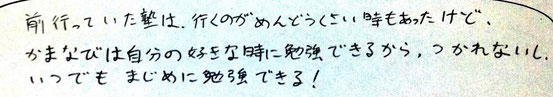 前行っていた塾は、行くのがめんどうくさい時もあったけど、
かまなびは自分の好きな時に勉強できるから、つかれないし、
いつでもまじめに勉強できる！